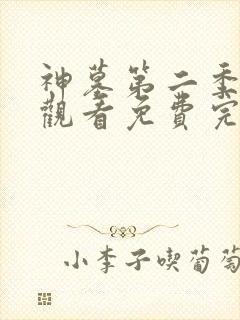 神墓第二季
觀看免費完
小李子喫葡萄